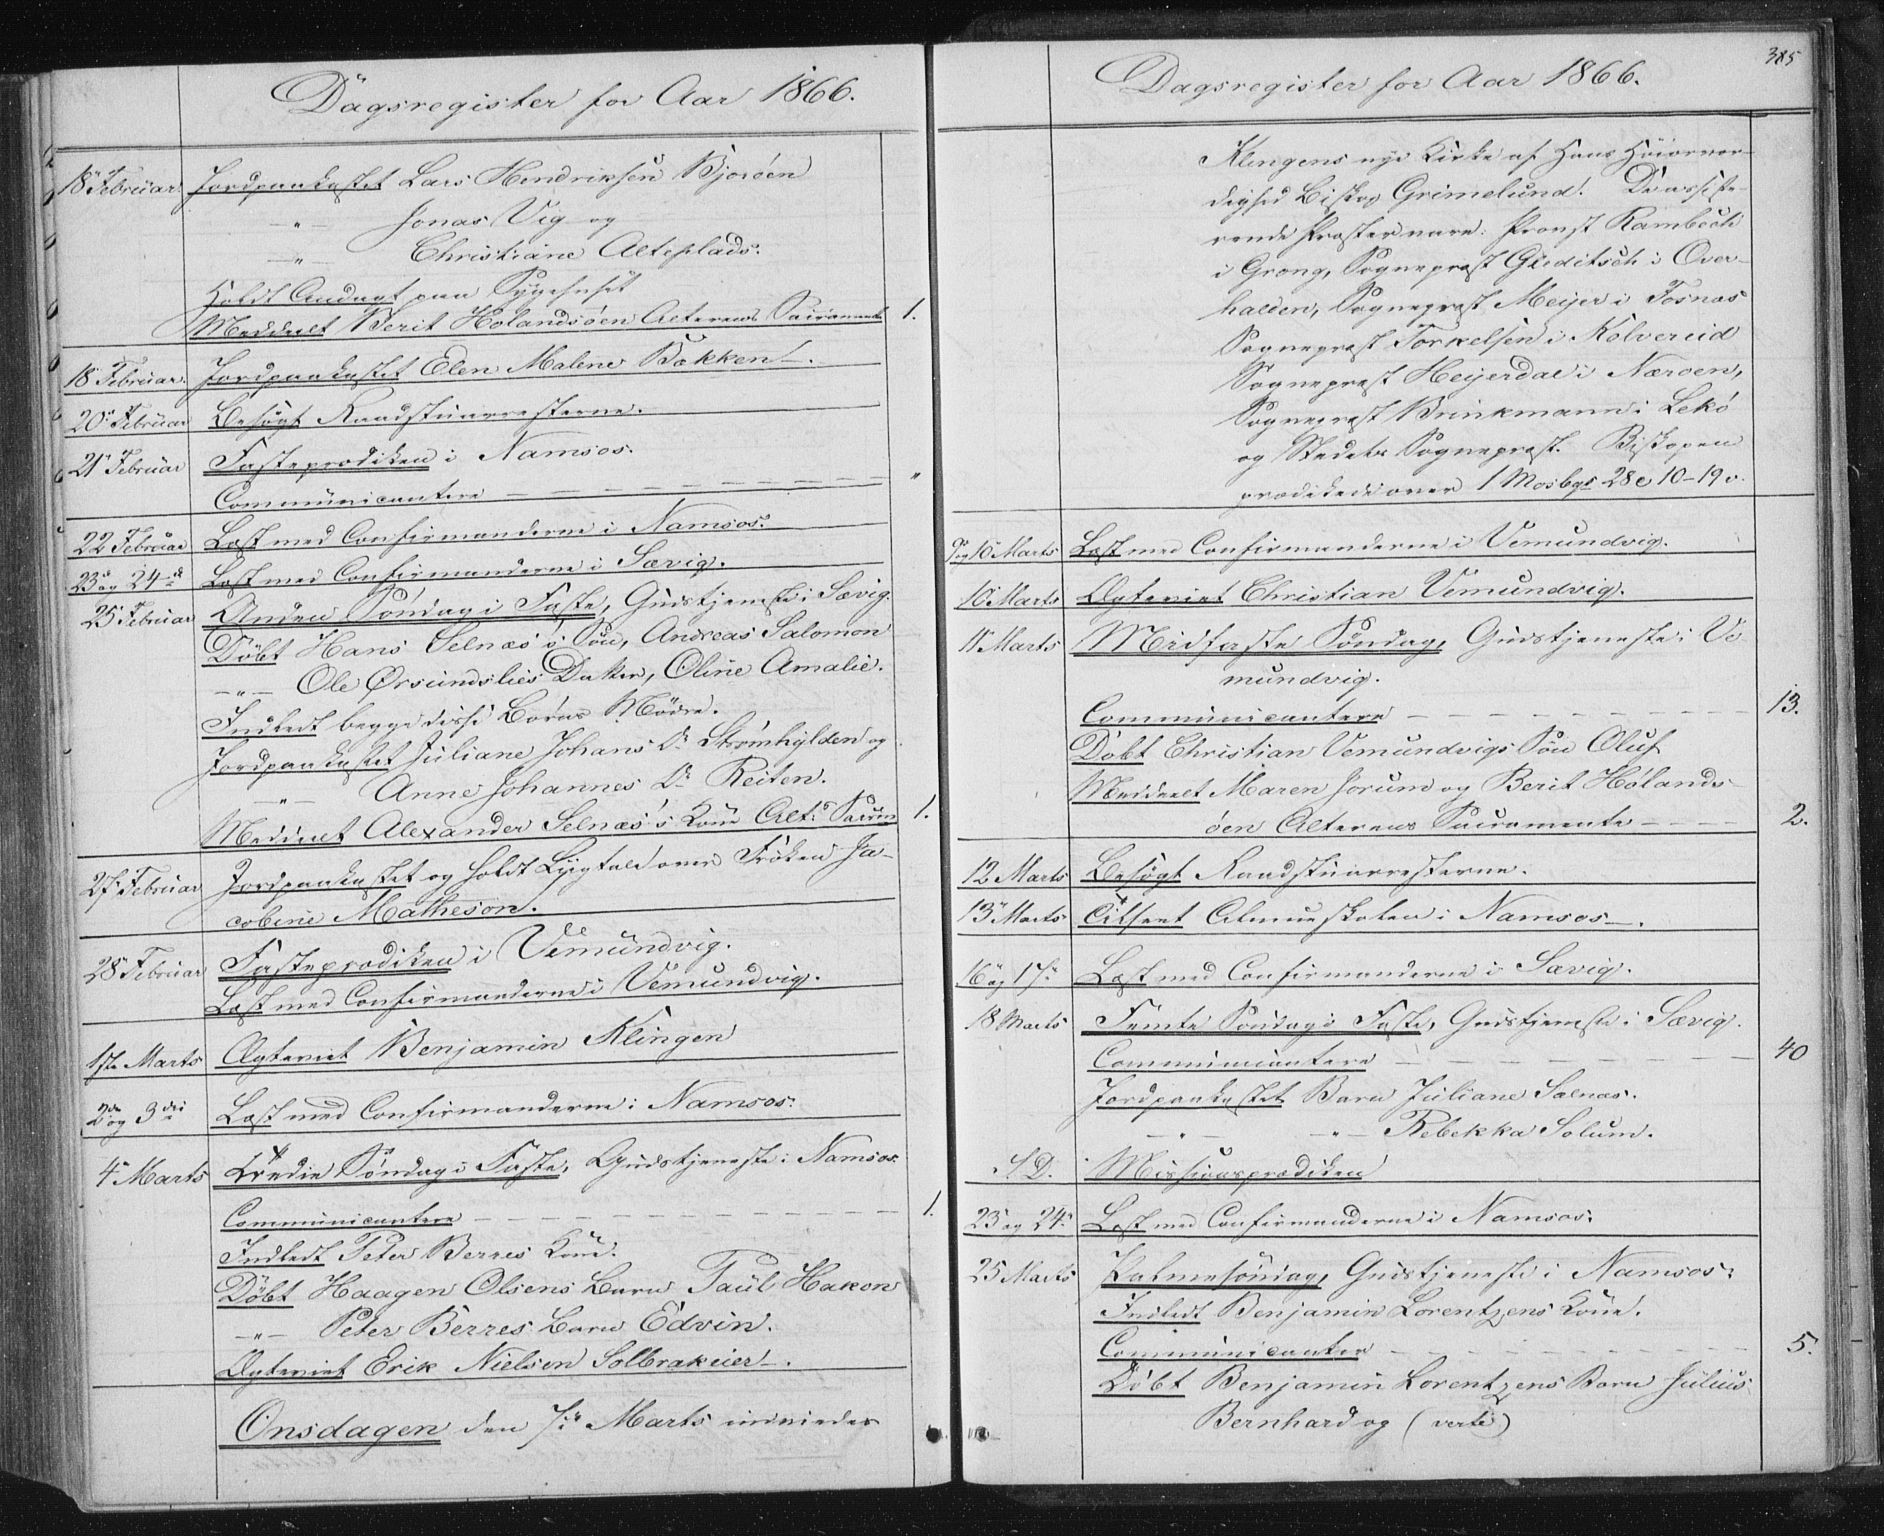 Dagsregister for Aar 1866.
18 Februar. Jordpaakastet Lars Hendriksen Bjorøen
—"— Jonas Vig og
—"— Christiane Alteplads.
Holdt Andagt paa Sygehuset
Meddeelt Berit Hølandsøen Alterens Sacramente 1.
18 Februar. Jordpaakastet Elen Malene Bækken.
20 Februar Besøgt Raadstuarresterne.
21 Februar Fasteprædiken i Namsos.
Communicantere — — — "
22 Februar Læst med Confirmanderne i Namsos.
23 og 24de Læst med Confirmanderne i Sævig.
25 Februar Anden Søndag i Faste, Gudstjeneste i Sævig.
Döbt Hans Selnæs's Søn, Andreas Salomon
—"— Ole Ørsundslies Datter, Oline Amalie.
Indledt begge disse Børns Mødre.
Jordpaakastet Juliane Johans D. Strömhylden og
—"— Anne Johannes D. Reiten.
Meddeelt Alexander Selnæs's Kone Alt. Sacram 1.
27 Februar Jordpaakastet og holdt Liigtale over Frøken Ja-
cobine Matheson.
28 Februar Fasteprædiken i Vemundvig.
Læst med Confirmanderne i Vemundvig.
1ste Marts Ægteviet Benjamin Klingen
2den og 3die Læst med Confirmanderne i Namsos.
4 Marts Tredie Søndag i Faste, Gudstjeneste i Namsos.
Communicantere — — — 1.
Indledt Peter Berres Kone.
Döbt Haagen Olsens Barn Paul Hakon
—"— Peter Berres Barn Edvin.
Ægteviet Erik Nielsen Solbrakeier.
Onsdagen den 7de Marts indviedes
Dagsregister for Aar 1866. 385
Klingens nye Kirke af Hans Höiærvær-
dighed Biskop Grimelund. De assiste-
rende Præster vare: Provst Rambech
i Grong, Sognepræst Gleditsch i Over-
halden, Sognepræst Meijer i Fosnæs
Sognepræst Torkelsen i Kolvereid
Sognepræst Heijerdal i Nærøen,
Sognepræst Brinkmann i Lekö
og Stedets Sognepræst. Biskopen
prædikede over 1 Mosbgs 28 C 10-19 v.
9 og 10 Marts Læst med Confirmanderne i Vemundvig.
10 Marts Ægteviet Christian Vemundvig.
11 Marts Midfaste Søndag, Gudstjeneste i Ve
mundvig.
Communicantere — — — 13.
Döbt Christian Vemundvigs Søn Oluf
Meddeelt Maren Jorum og Berit Hølands-
øen Alterens Sacramente — — 2.
12 Marts Besøgt Raadstuarresterne.
13 Marts Tilseet Almueskolen i Namsos.
16 og 17 Læst med Confirmanderne i Sævig.
18 Marts Femte Søndag i Faste, Gudstjeneste i Sævig.
Communicantere — — — 40
Jordpaakastet Barn Juliane Salnæs.
—"— —"— Rebekka Solum.
S. D. Missionsprædiken
23 og 24 Læst med Confirmanderne i Namsos.
25 Marts Palmesøndag, Gudstjeneste i Namsos.
Indledt Benjamin Lorentzens Kone.
Communicanter — — — 5.
Döbt Benjamin Lorentzens Barn Julius
Bernhard og (verte)